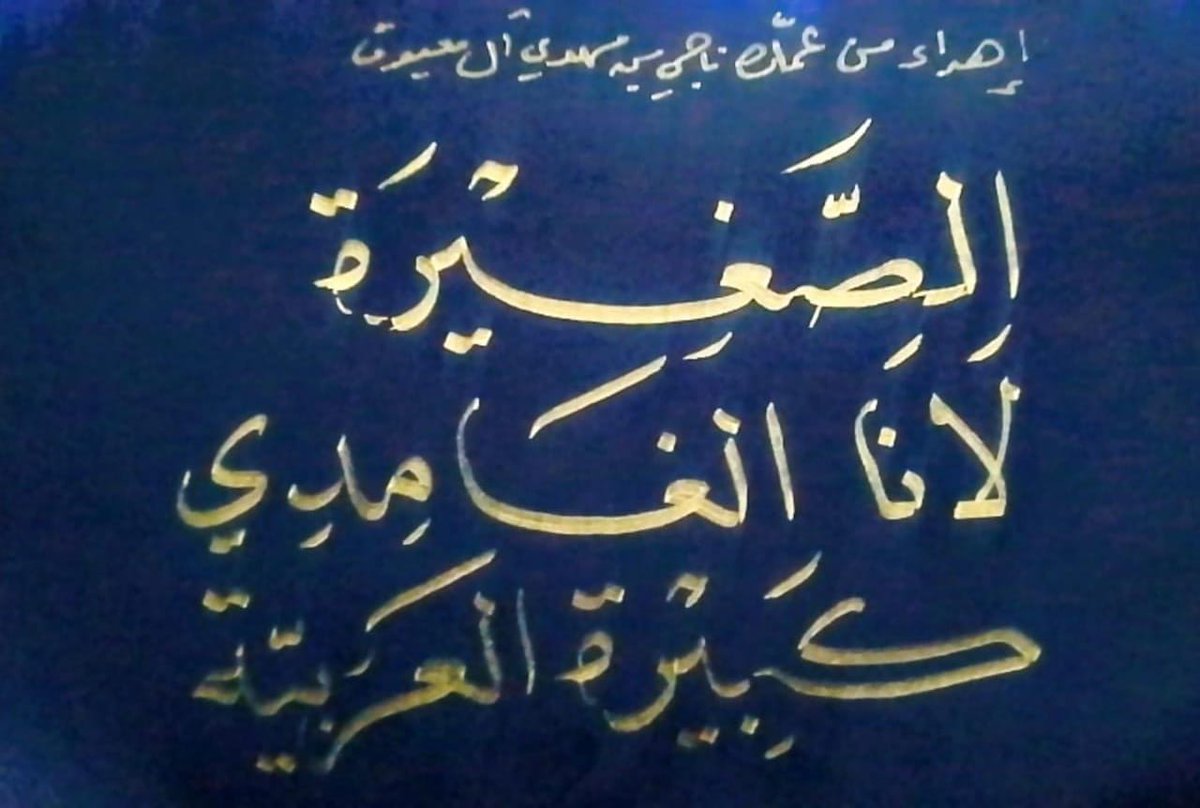 إهداء من عمك ناجي بن مهدي آل معيوف
الصَّغِيْرَة
لَانَا الغَامِدِي
كَبِيْرة العَربيّة